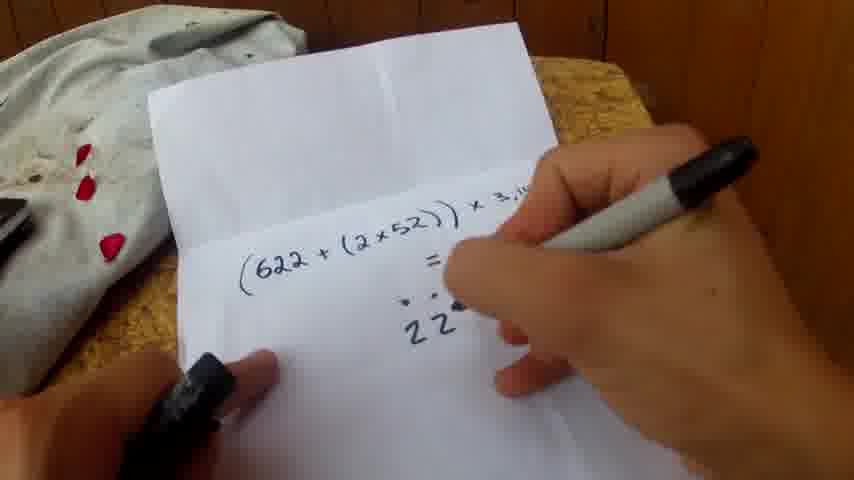 (622 + (2x52)) x 3,1
=
22